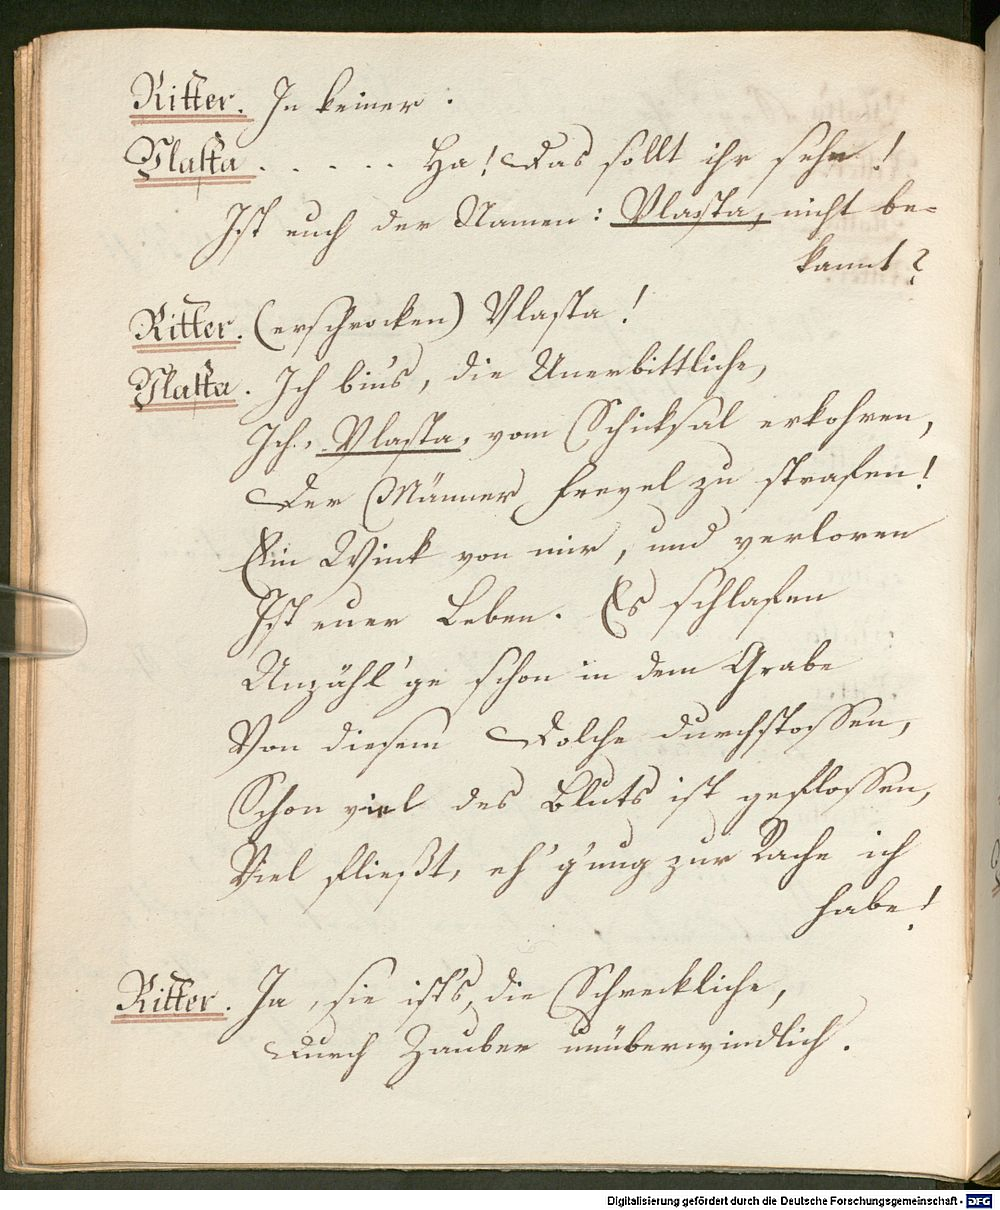 Ritter. In keiner.
Vlasta. . . . . Ha! Das sollt ihr sehn!
Ist euch der Namen: Vlasta, nicht be=
kannt?
Ritter. (erschrocken) Vlasta!
Vlasta. Ich bin's, die Unerbittliche,
Ich, Vlasta, vom Schicksal erkohren,
Der Männer Frevel zu strafen!
Ein Wink von mir, und verloren
Ist euer Leben. Es schlafen
Unzähl'ge schon in dem Grabe
Von diesem Dolche durchstossen,
Schon viel des Bluts ist geflossen,
Viel fließt, eh' g'nug zur Rache ich
habe!
Ritter. Ja, sie ist's, die Schreckliche,
Durch Zauber unüberwindlich.
Digitalisierung gefördert durch die Deutsche Forschungsgemeinschaft - DFG